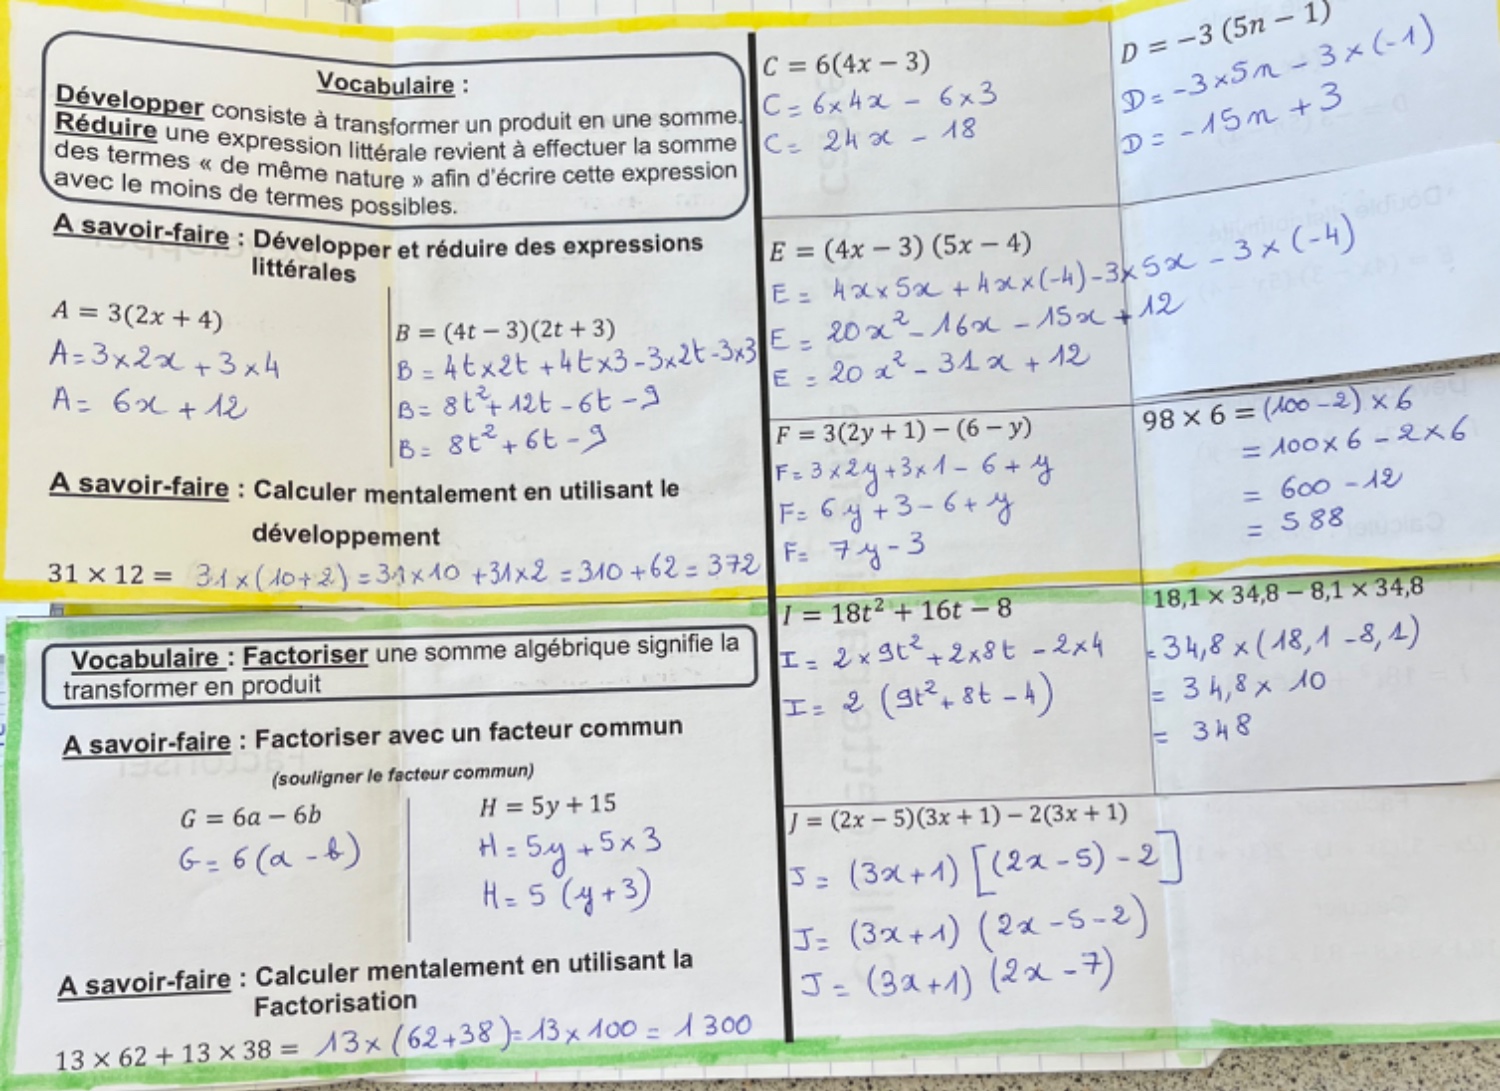 Vocabulaire :
Développer consiste à transformer un produit en une somme.
Réduire une expression littérale revient à effectuer la somme
des termes « de même nature » afin d'écrire cette expression
avec le moins de termes possibles.
A savoir-faire : Développer et réduire des expressions
littérales
A = 3(2x + 4)
A = 3×2x + 3×4
A = 6x + 12
B = (4t − 3)(2t + 3)
B = 4t×2t + 4t×3 - 3×2t - 3×3
B = 8t² + 12t - 6t - 9
B = 8t² + 6t - 9
A savoir-faire : Calculer mentalement en utilisant le
développement
31 × 12 = 31×(10+2) = 31×10 + 31×2 = 310 + 62 = 372
C = 6(4x − 3)
C = 6×4x - 6×3
C = 24x - 18
D = −3 (5n − 1)
D = -3×5n - 3×(-1)
D = -15n + 3
E = (4x − 3) (5x − 4)
E = 4x×5x + 4x×(-4) - 3×5x - 3×(-4)
E = 20x² - 16x - 15x + 12
E = 20x² - 31x + 12
F = 3(2y + 1) − (6 − y)
F = 3×2y + 3×1 - 6 + y
F = 6y + 3 - 6 + y
F = 7y - 3
98 × 6 = (100-2) × 6
= 100×6 - 2×6
= 600 - 12
= 588
Vocabulaire : Factoriser une somme algébrique signifie la
transformer en produit
A savoir-faire : Factoriser avec un facteur commun
(souligner le facteur commun)
G = 6a − 6b
G = 6(a - b)
H = 5y + 15
H = 5y + 5×3
H = 5 (y + 3)
A savoir-faire : Calculer mentalement en utilisant la
Factorisation
13 × 62 + 13 × 38 = 13×(62+38) = 13×100 = 1300
I = 18t² + 16t − 8
I = 2×9t² + 2×8t - 2×4
I = 2 (9t² + 8t - 4)
18,1 × 34,8 − 8,1 × 34,8
= 34,8 × (18,1 - 8,1)
= 34,8 × 10
= 348
J = (2x − 5)(3x + 1) − 2(3x + 1)
J = (3x+1) [(2x - 5) - 2]
J = (3x+1) (2x - 5 - 2)
J = (3x+1) (2x - 7)